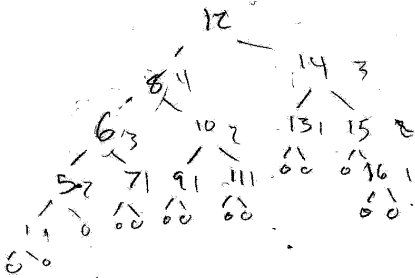 12
8 4 14 3
6 3 10 2 13 1 15 2
5 2 7 1 9 1 11 1 0 0 0 16 1
1 1 0 0 0 0 0 0 0 0 0
0 0